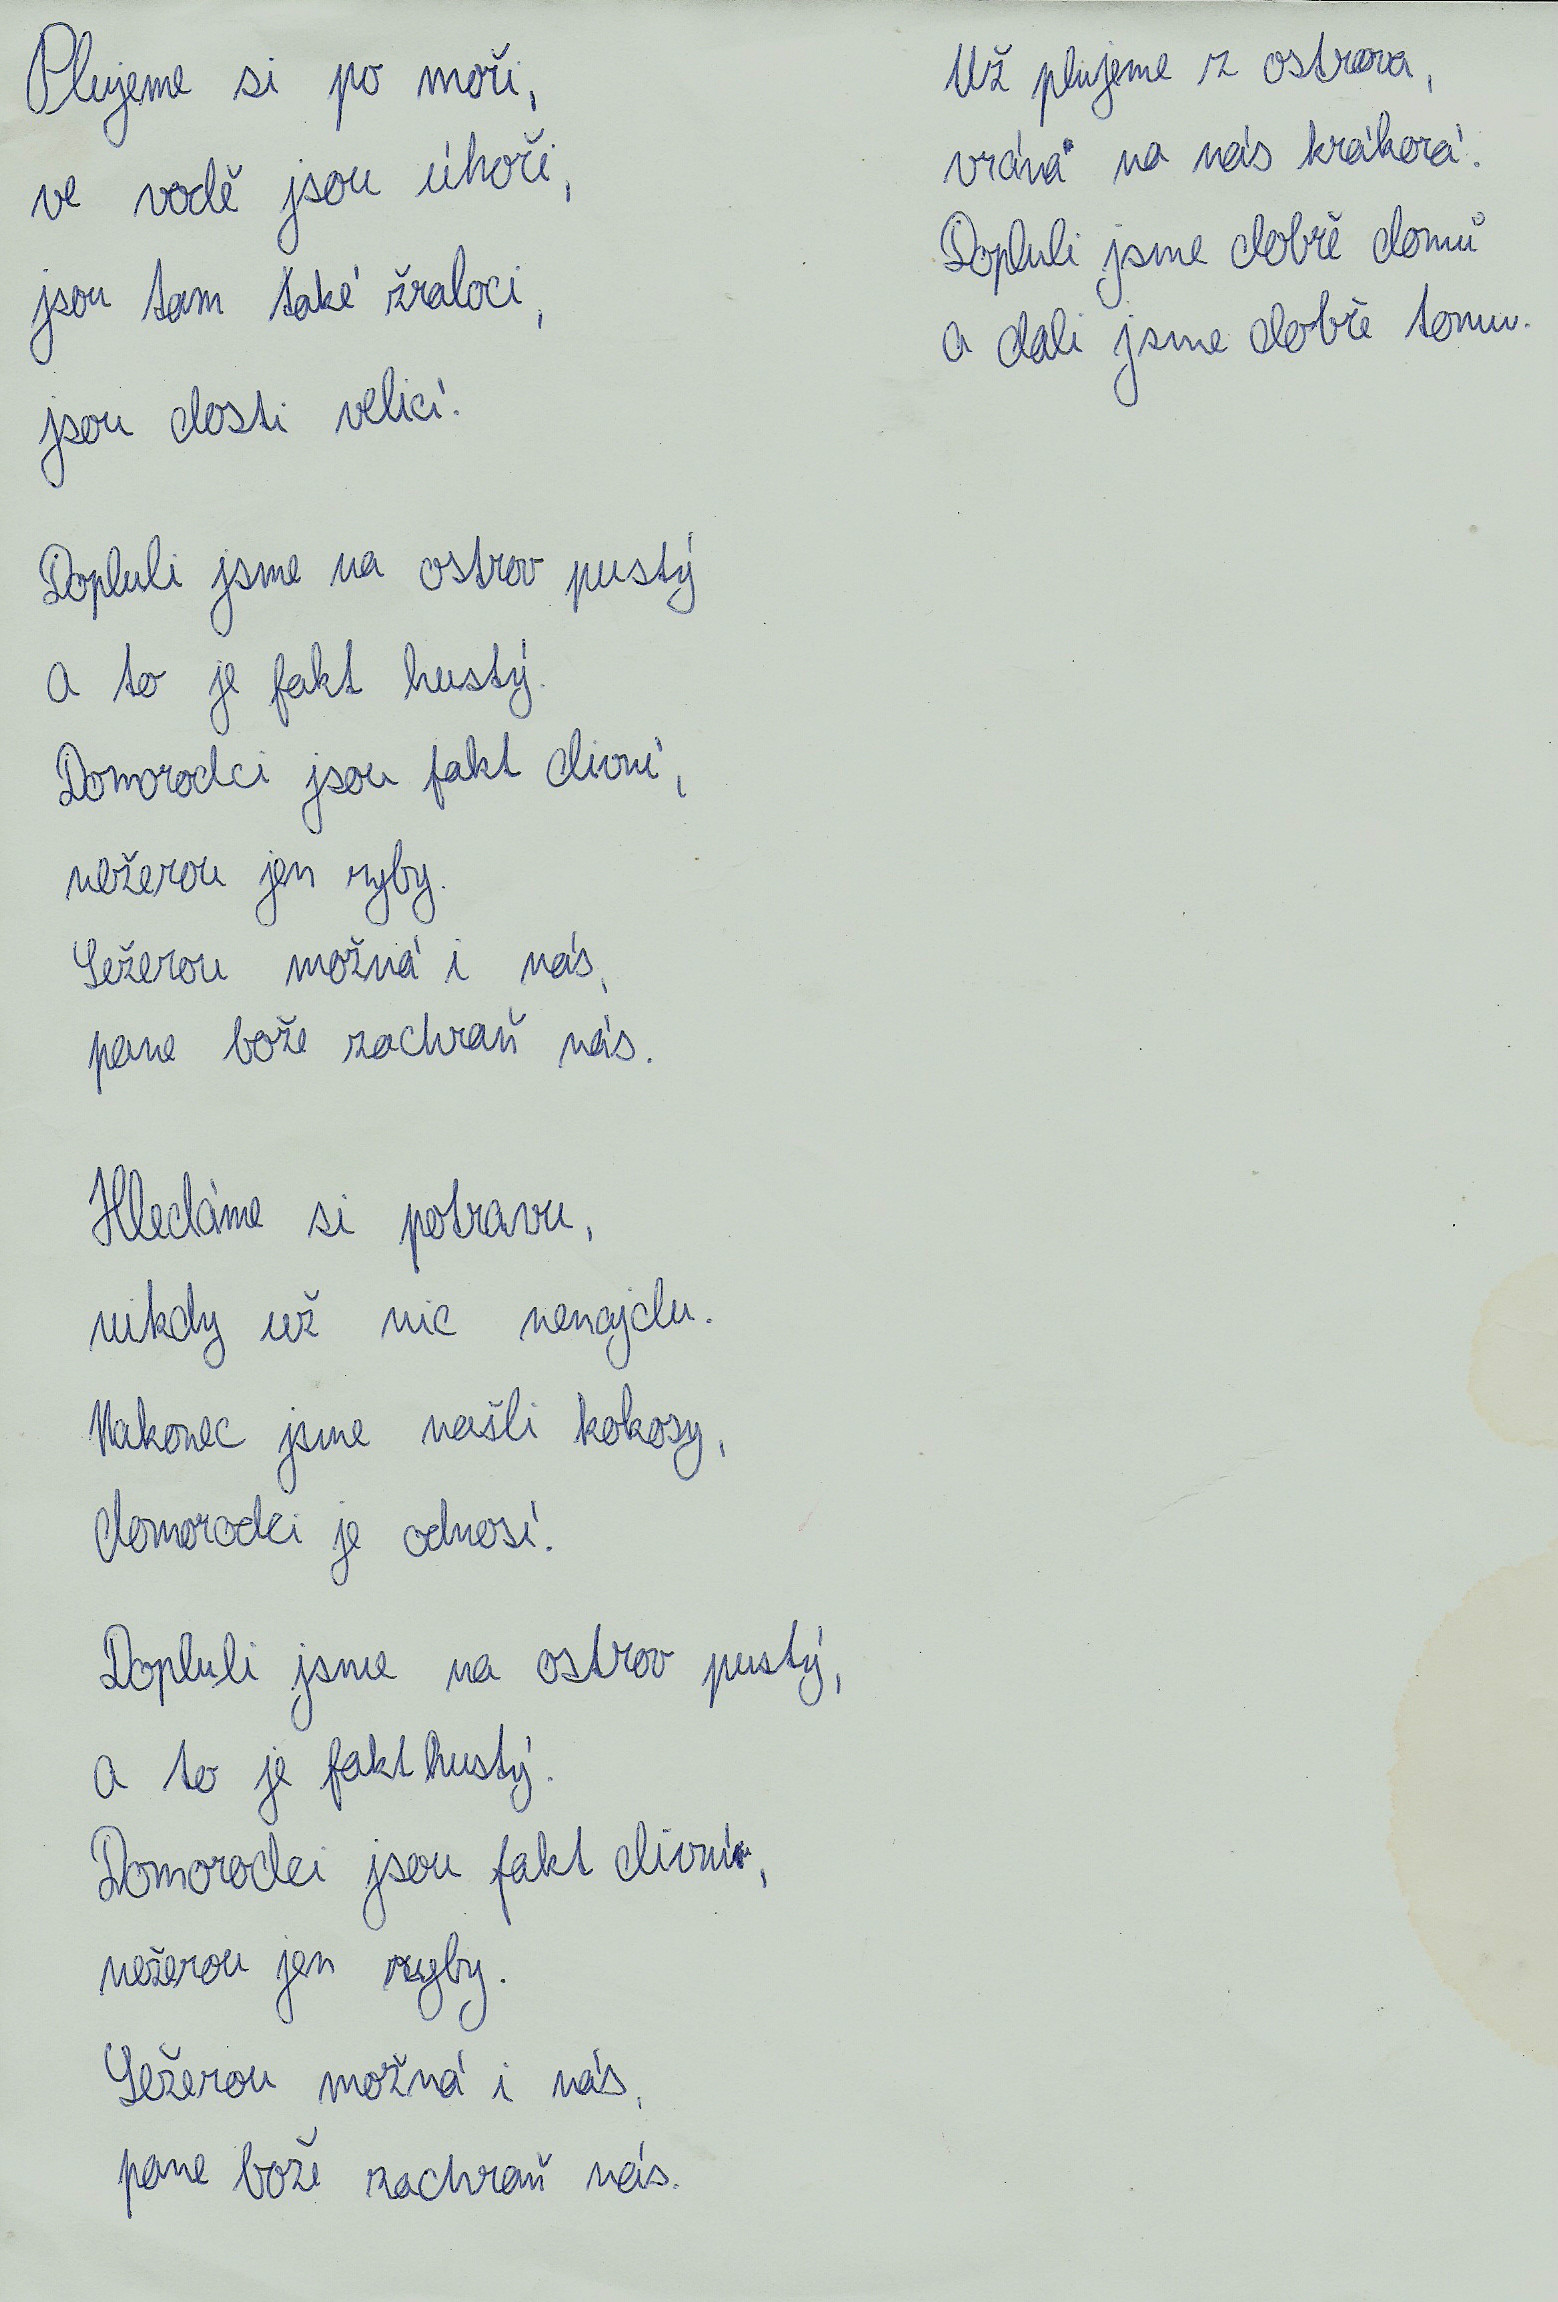 Plujeme si po moři,
ve vodě jsou úhoři,
jsou tam také žraloci,
jsou dosti velicí.
Dopluli jsme na ostrov pustý
a to je fakt hustý.
Domorodci jsou fakt divní,
nežerou jen ryby.
Sežerou možná i nás,
pane bože zachraň nás.
Hledáme si potravu,
nikdy už nic nenajdu.
Nakonec jsme našli kokosy,
domorodci je odnosí.
Dopluli jsme na ostrov pustý,
a to je fakt hustý.
Domorodci jsou fakt divní,
nežerou jen ryby.
Sežerou možná i nás,
pane bože zachraň nás.
Už plujeme z ostrova,
vrána na nás krákorá.
Dopluli jsme dobře domů
a dali jsme dobře tomu.